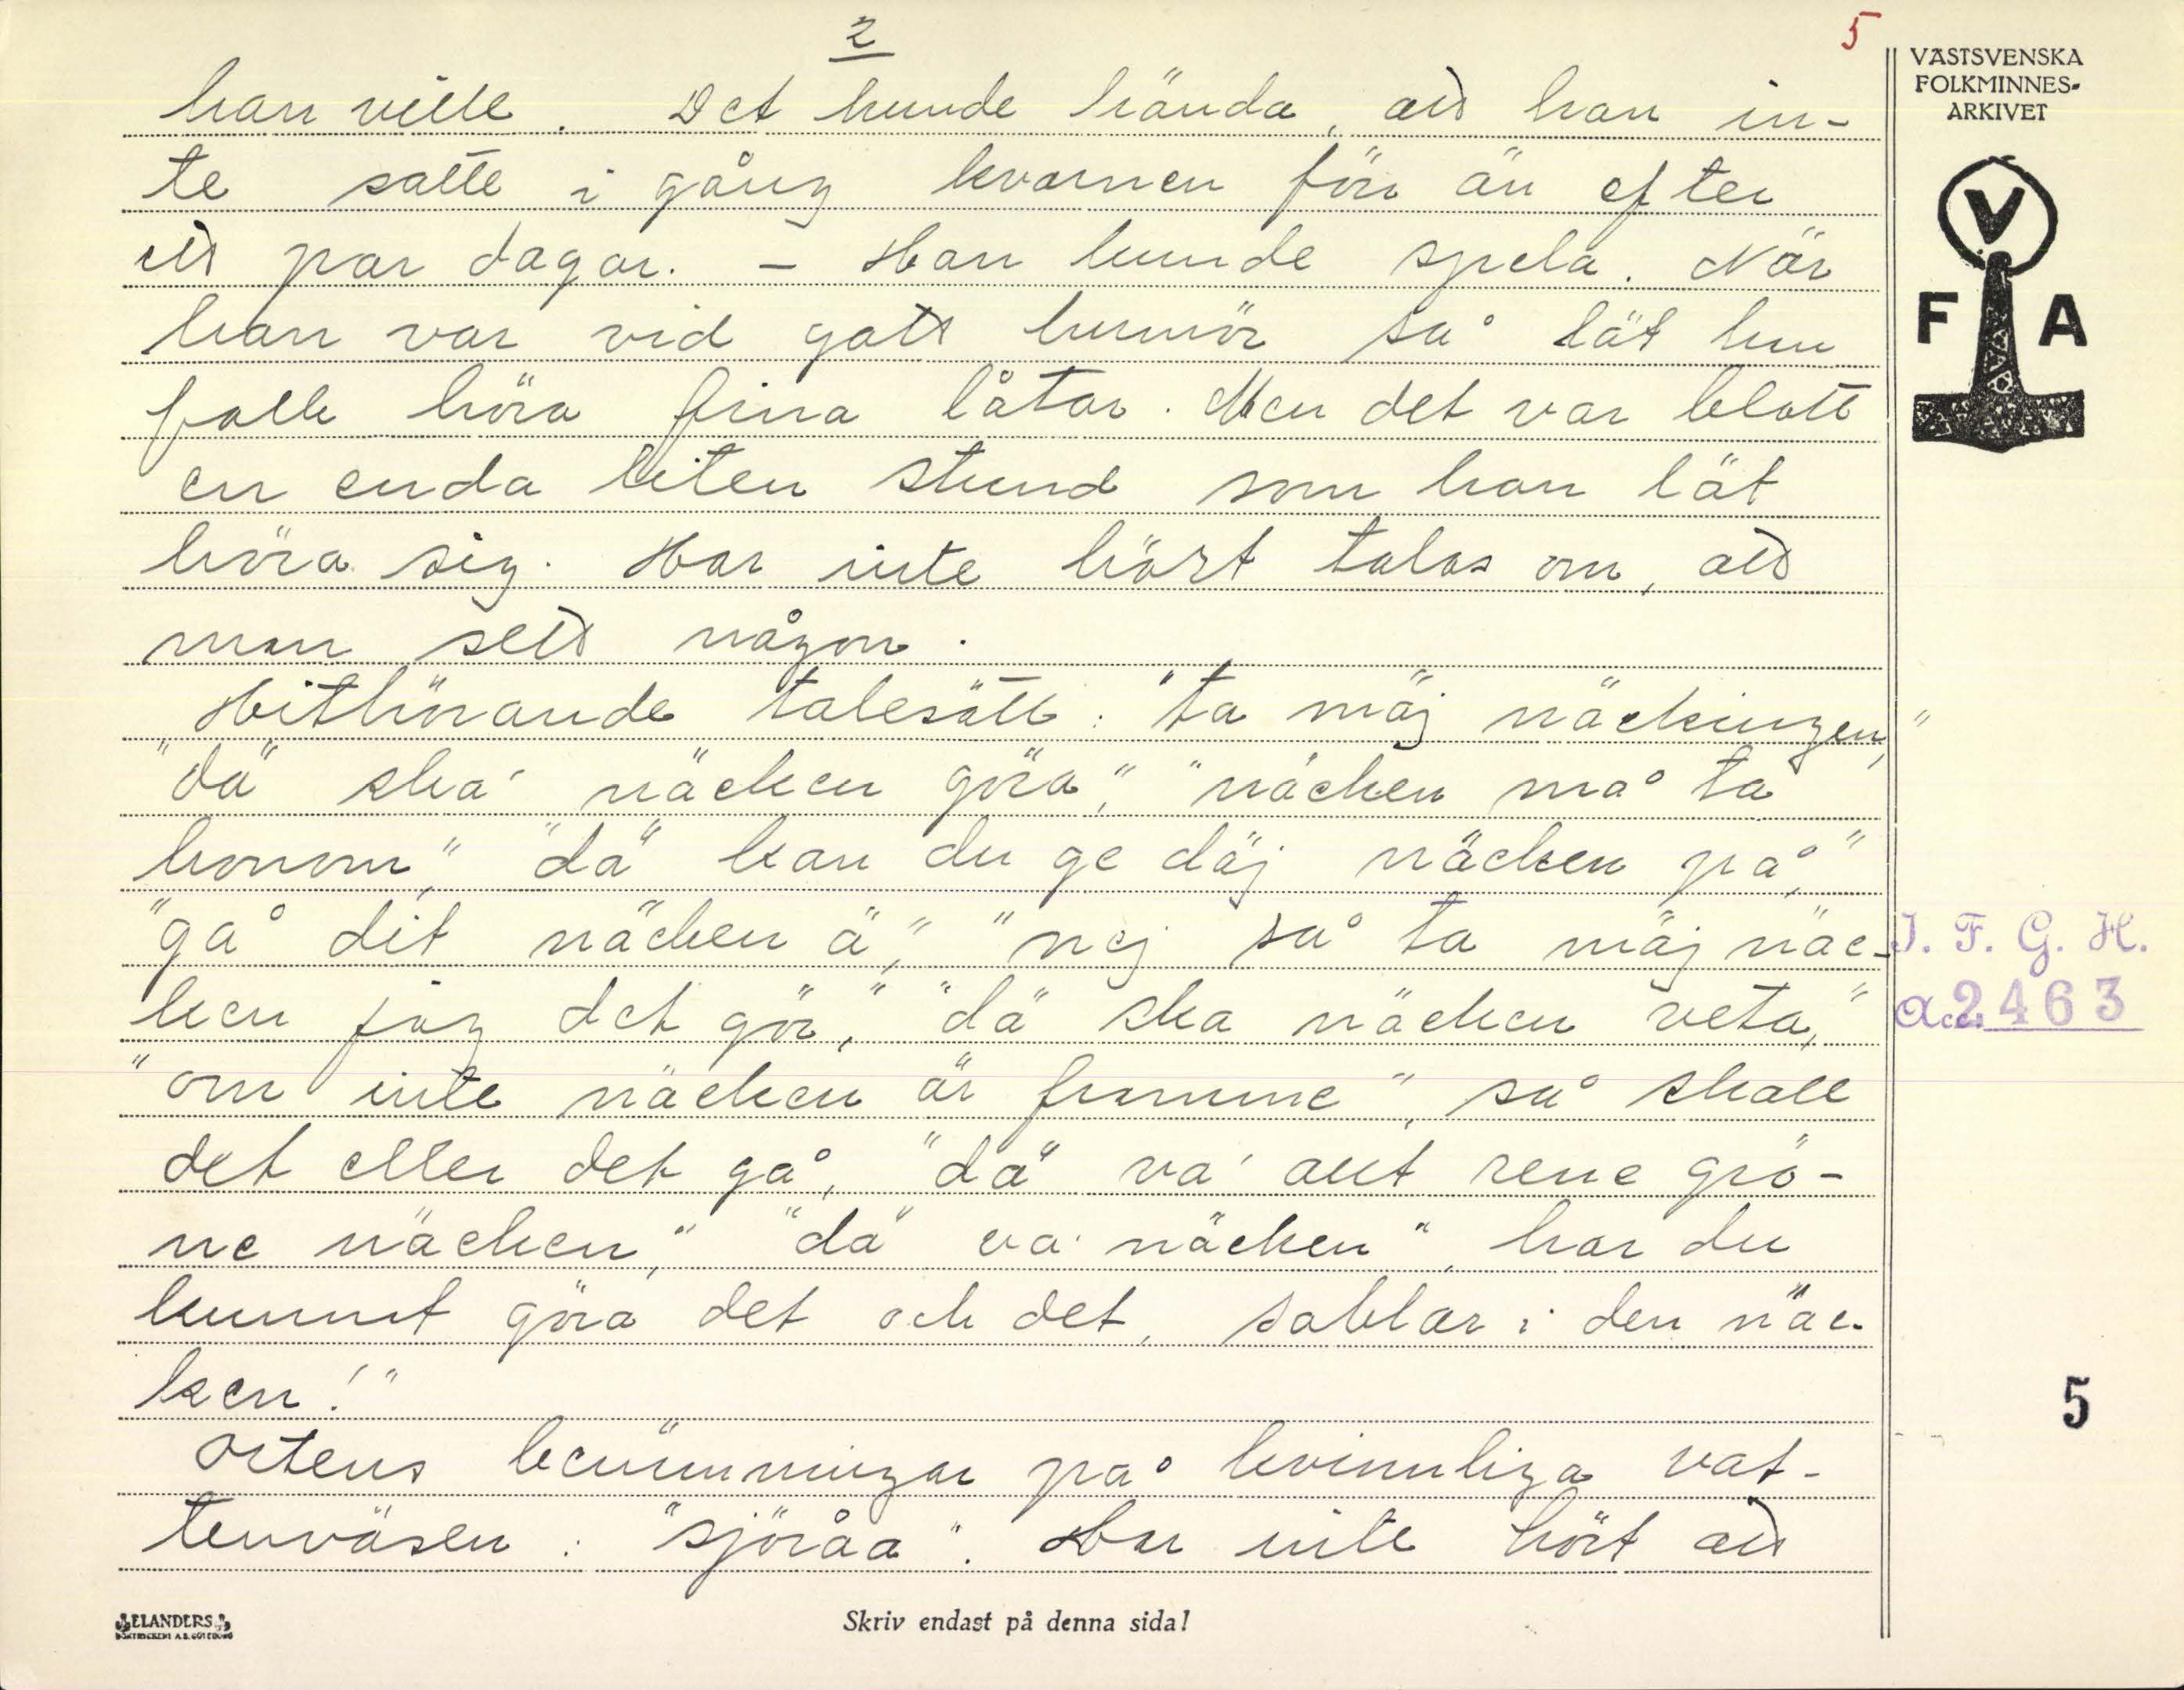 2
5
han ville. Det kunde hända, att han in-
te satte i gång kvarnen förr än efter
ett par dagar. – Han kunde spela. När
han var vid gott humör så lät han
folk höra fina låtar. Men det var blott
en enda liten stund som han lät
höra sig. Har inte hört talas om, att
man sett någon.
Hithörande talesätt: "ta mäj näckingen",
"dä" ska' näcken göra", "näcken må ta
honom", "dä" kan du ge däj näcken på",
"gå dit näcken ä", "nej så ta mäj näc-
ken jag det gör", "dä" ska näcken veta",
"om inte näcken är framme", så skall
det eller det gå, "dä" va' aut rene grö-
ne näcken", "dä" va' näcken", har du
kunnat göra det och det, sablar i den näc-
ken!"
Ortens benämningar på kvinnliga vat-
tenväsen: "sjöråa". Har inte hört att
VÄSTSVENSKA
FOLKMINNES-
ARKIVET
V
F A
I. F. G. H.
Acc. 2463
5
ELANDERS
BOKTRYCKERI A.B. GÖTEBORG
Skriv endast på denna sida!